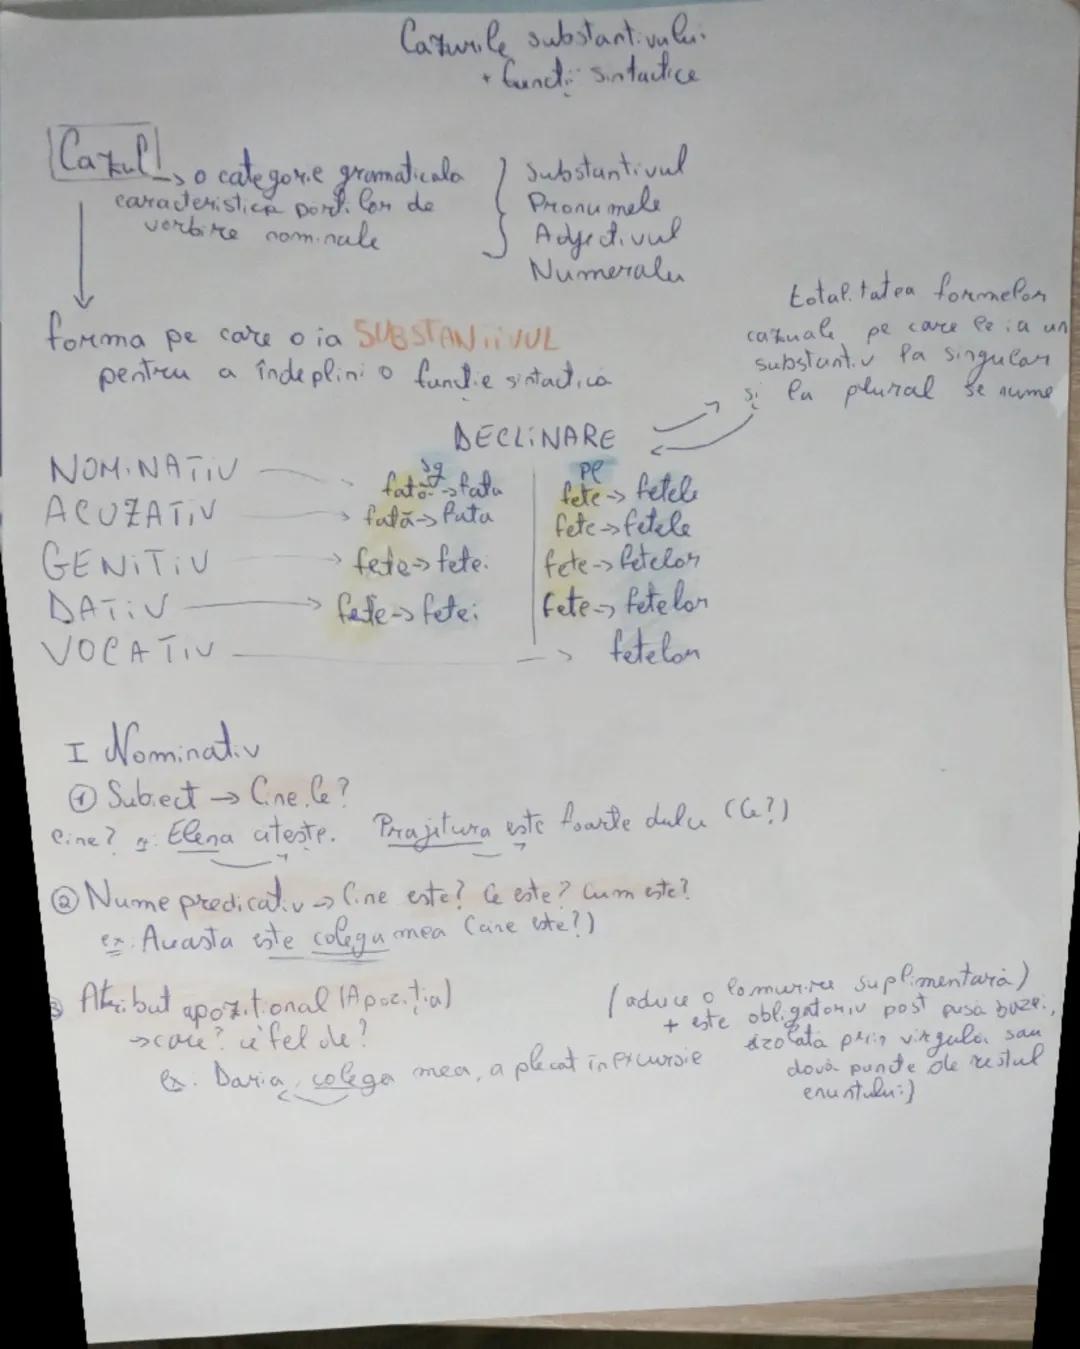 Cazurile substantivului
+ funcții sintactice
Cazul → o categorie gramaticala
caracteristica părtilor de
vorbire nominale
} Substantivul
Pronumele
Adjectivul
Numeralu
forma pe care o ia SUBSTANTiVUL
pentru a îndeplini o funcție sintactica
totalitatea formelor
cazuale pe care le ia un
substantiv la singular
si la plural se nume
DECLiNARE
sg | pl
NOMiNATiV → fată → fata | fete → fetele
ACUZATiV → fată → fata | fete → fetele
GENiTiV → fete → fetei | fete → fetelor
DATiV → fete → fetei | fete → fetelor
VOCATiV → fetelor
I Nominativ
① Subiect → Cine, Ce?
Cine? Elena citește. Prajitura este foarte dulce (Ce?)
② Nume predicativ → Cine este? Ce este? Cum este?
ex: Aceasta este colega mea (cine este?)
3 Atribut apozitional (Apoziția)
→ care? ce fel de?
ex: Daria, colega mea, a plecat în excursie
(aduce o lamurire suplimentară)
+ este obligatoriu post pusa bazei,
izolata prin virgula sau
două puncte de restul
enuntului)